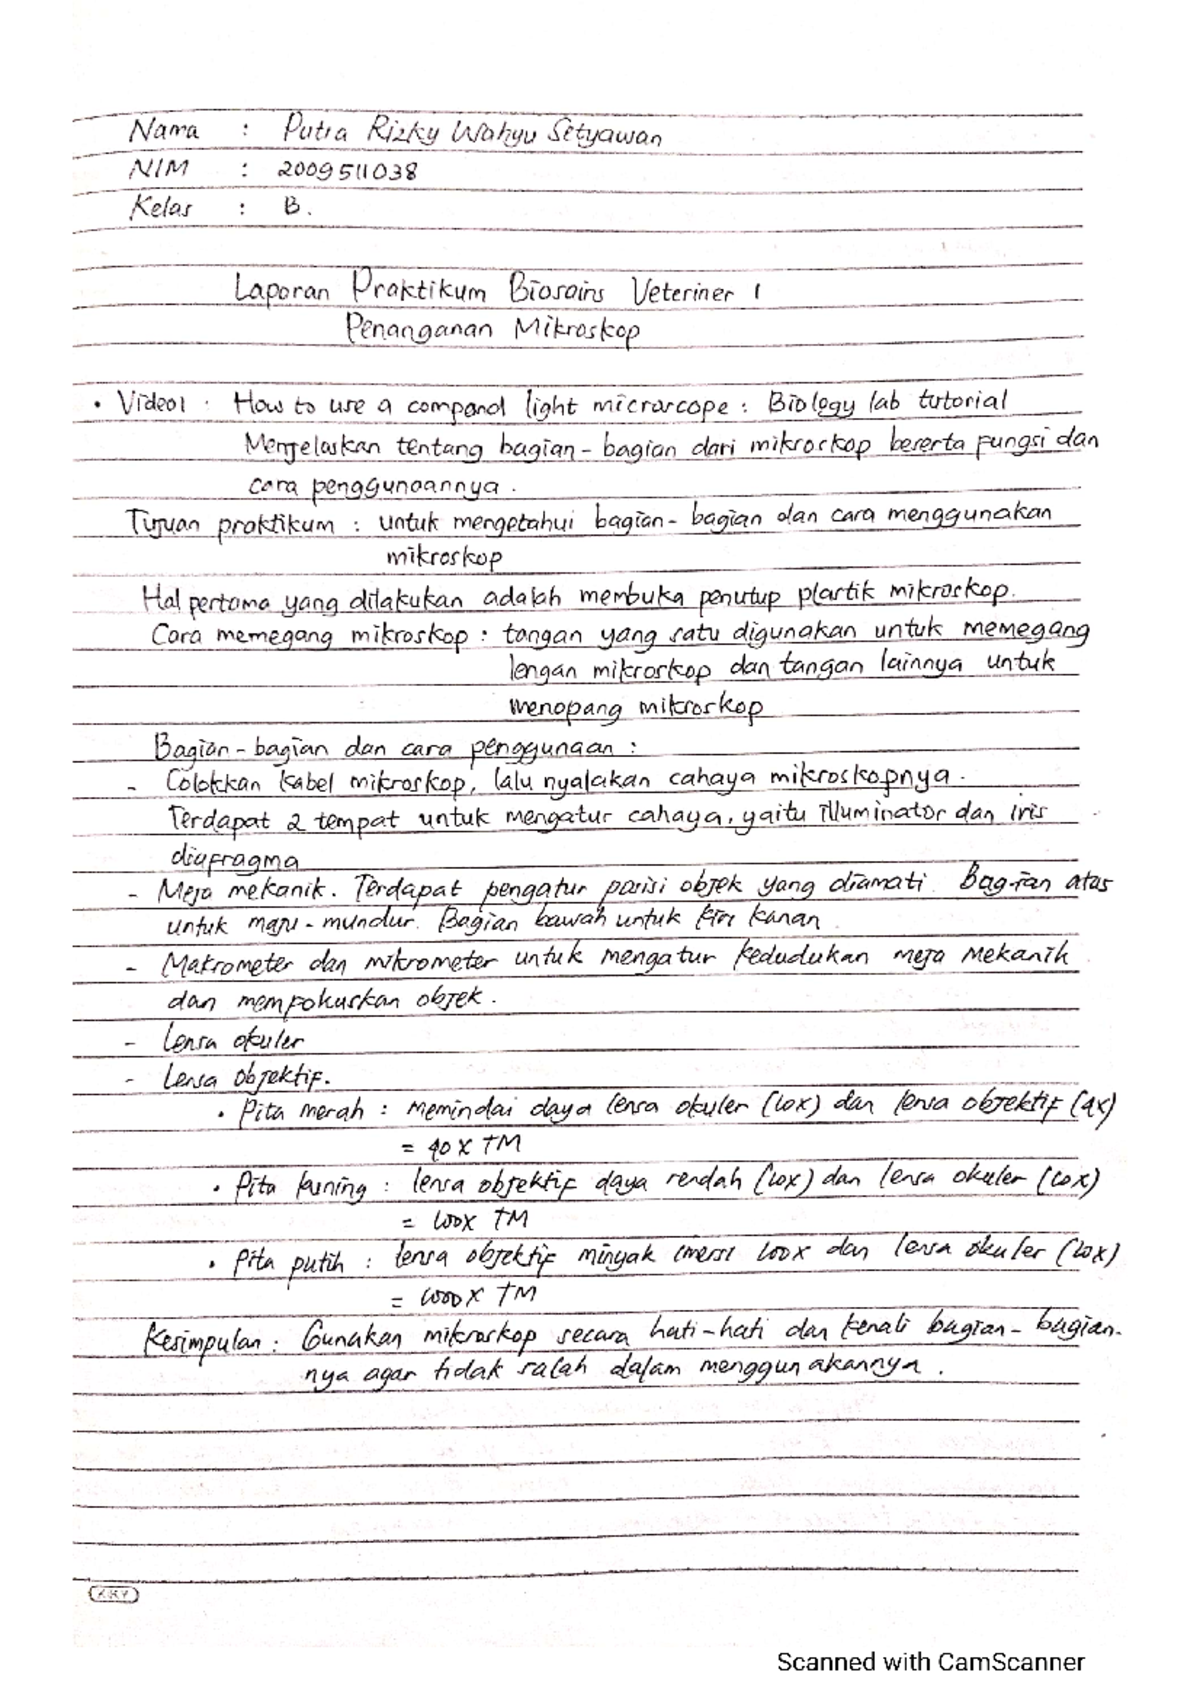 Nama : Putra Rizky Wahyu Setyawan
NIM : 2009511038
Kelas : B.
Laporan Praktikum Biosains Veteriner 1
Penanganan Mikroskop
• Video1 : How to use a compond light microscope : Biology lab tutorial
Menjelaskan tentang bagian-bagian dari mikroskop beserta fungsi dan
cara penggunaannya.
Tujuan praktikum : untuk mengetahui bagian-bagian dan cara menggunakan
mikroskop
Hal pertama yang dilakukan adalah membuka penutup plastik mikroskop.
Cara memegang mikroskop : tangan yang satu digunakan untuk memegang
lengan mikroskop dan tangan lainnya untuk
menopang mikroskop
Bagian-bagian dan cara penggunaan :
- Colokkan kabel mikroskop, lalu nyalakan cahaya mikroskopnya.
Terdapat 2 tempat untuk mengatur cahaya, yaitu illuminator dan iris
diafragma
- Meja mekanik. Terdapat pengatur posisi objek yang diamati. Bagian atas
untuk maju-mundur. Bagian bawah untuk kiri kanan
- Makrometer dan mikrometer untuk mengatur kedudukan meja mekanik
dan mempokuskan objek.
- Lensa okuler
- Lensa objektif.
• Pita merah : memindai daya lensa okuler (10x) dan lensa objektif (4x)
= 40x TM
• Pita kuning : lensa objektif daya rendah (10x) dan lensa okuler (10x)
= 100x TM
• Pita putih : lensa objektif minyak imersi 100x dan lensa okuler (10x)
= 1000x TM
Kesimpulan : Gunakan mikroskop secara hati-hati dan kenali bagian-bagian-
nya agar tidak salah dalam menggunakannya.
KKY
Scanned with CamScanner